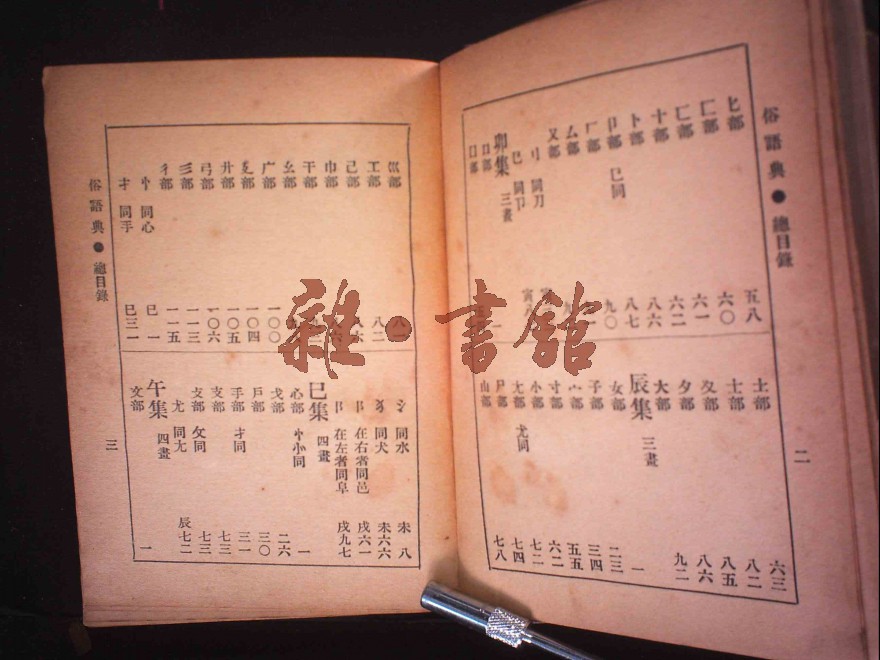 俗語典●總目錄
匕部 五八
匚部 六〇
匸部 六一
十部 六二
卜部 八六
卩部 㔾同 八七
厂部 九〇
厶部
又部
刂 同刀
㔾 同卩
卯集 三畫
口部 一
囗部
土部 六三
士部 八二
夂部 八五
夕部 八六
大部 九二
辰集 三畫
女部 一
子部 二三
宀部 三四
寸部 五五
小部 六二
尢部 尤同 七二
尸部 七四
山部 七八
二
巛部 八一
工部 八二
己部
巾部
干部
幺部
广部 一〇〇
廴部 一〇四
廾部 一〇五
弓部 一〇六
彡部 一一三
彳部 一一五
忄 同心 巳一
扌 同手 巳三一
氵 同水 未八
犭 同犬 未六六
阝 在右者同邑 戌六一
阝 在左者同阜 戌九七
巳集 四畫
心部 忄㣺同 一
戈部 二六
戶部 三〇
手部 扌同 三一
支部 七三
攴部 攵同 七三
尤 同尢 辰七二
午集 四畫
文部 一
俗語典●總目錄
三
雜·書館